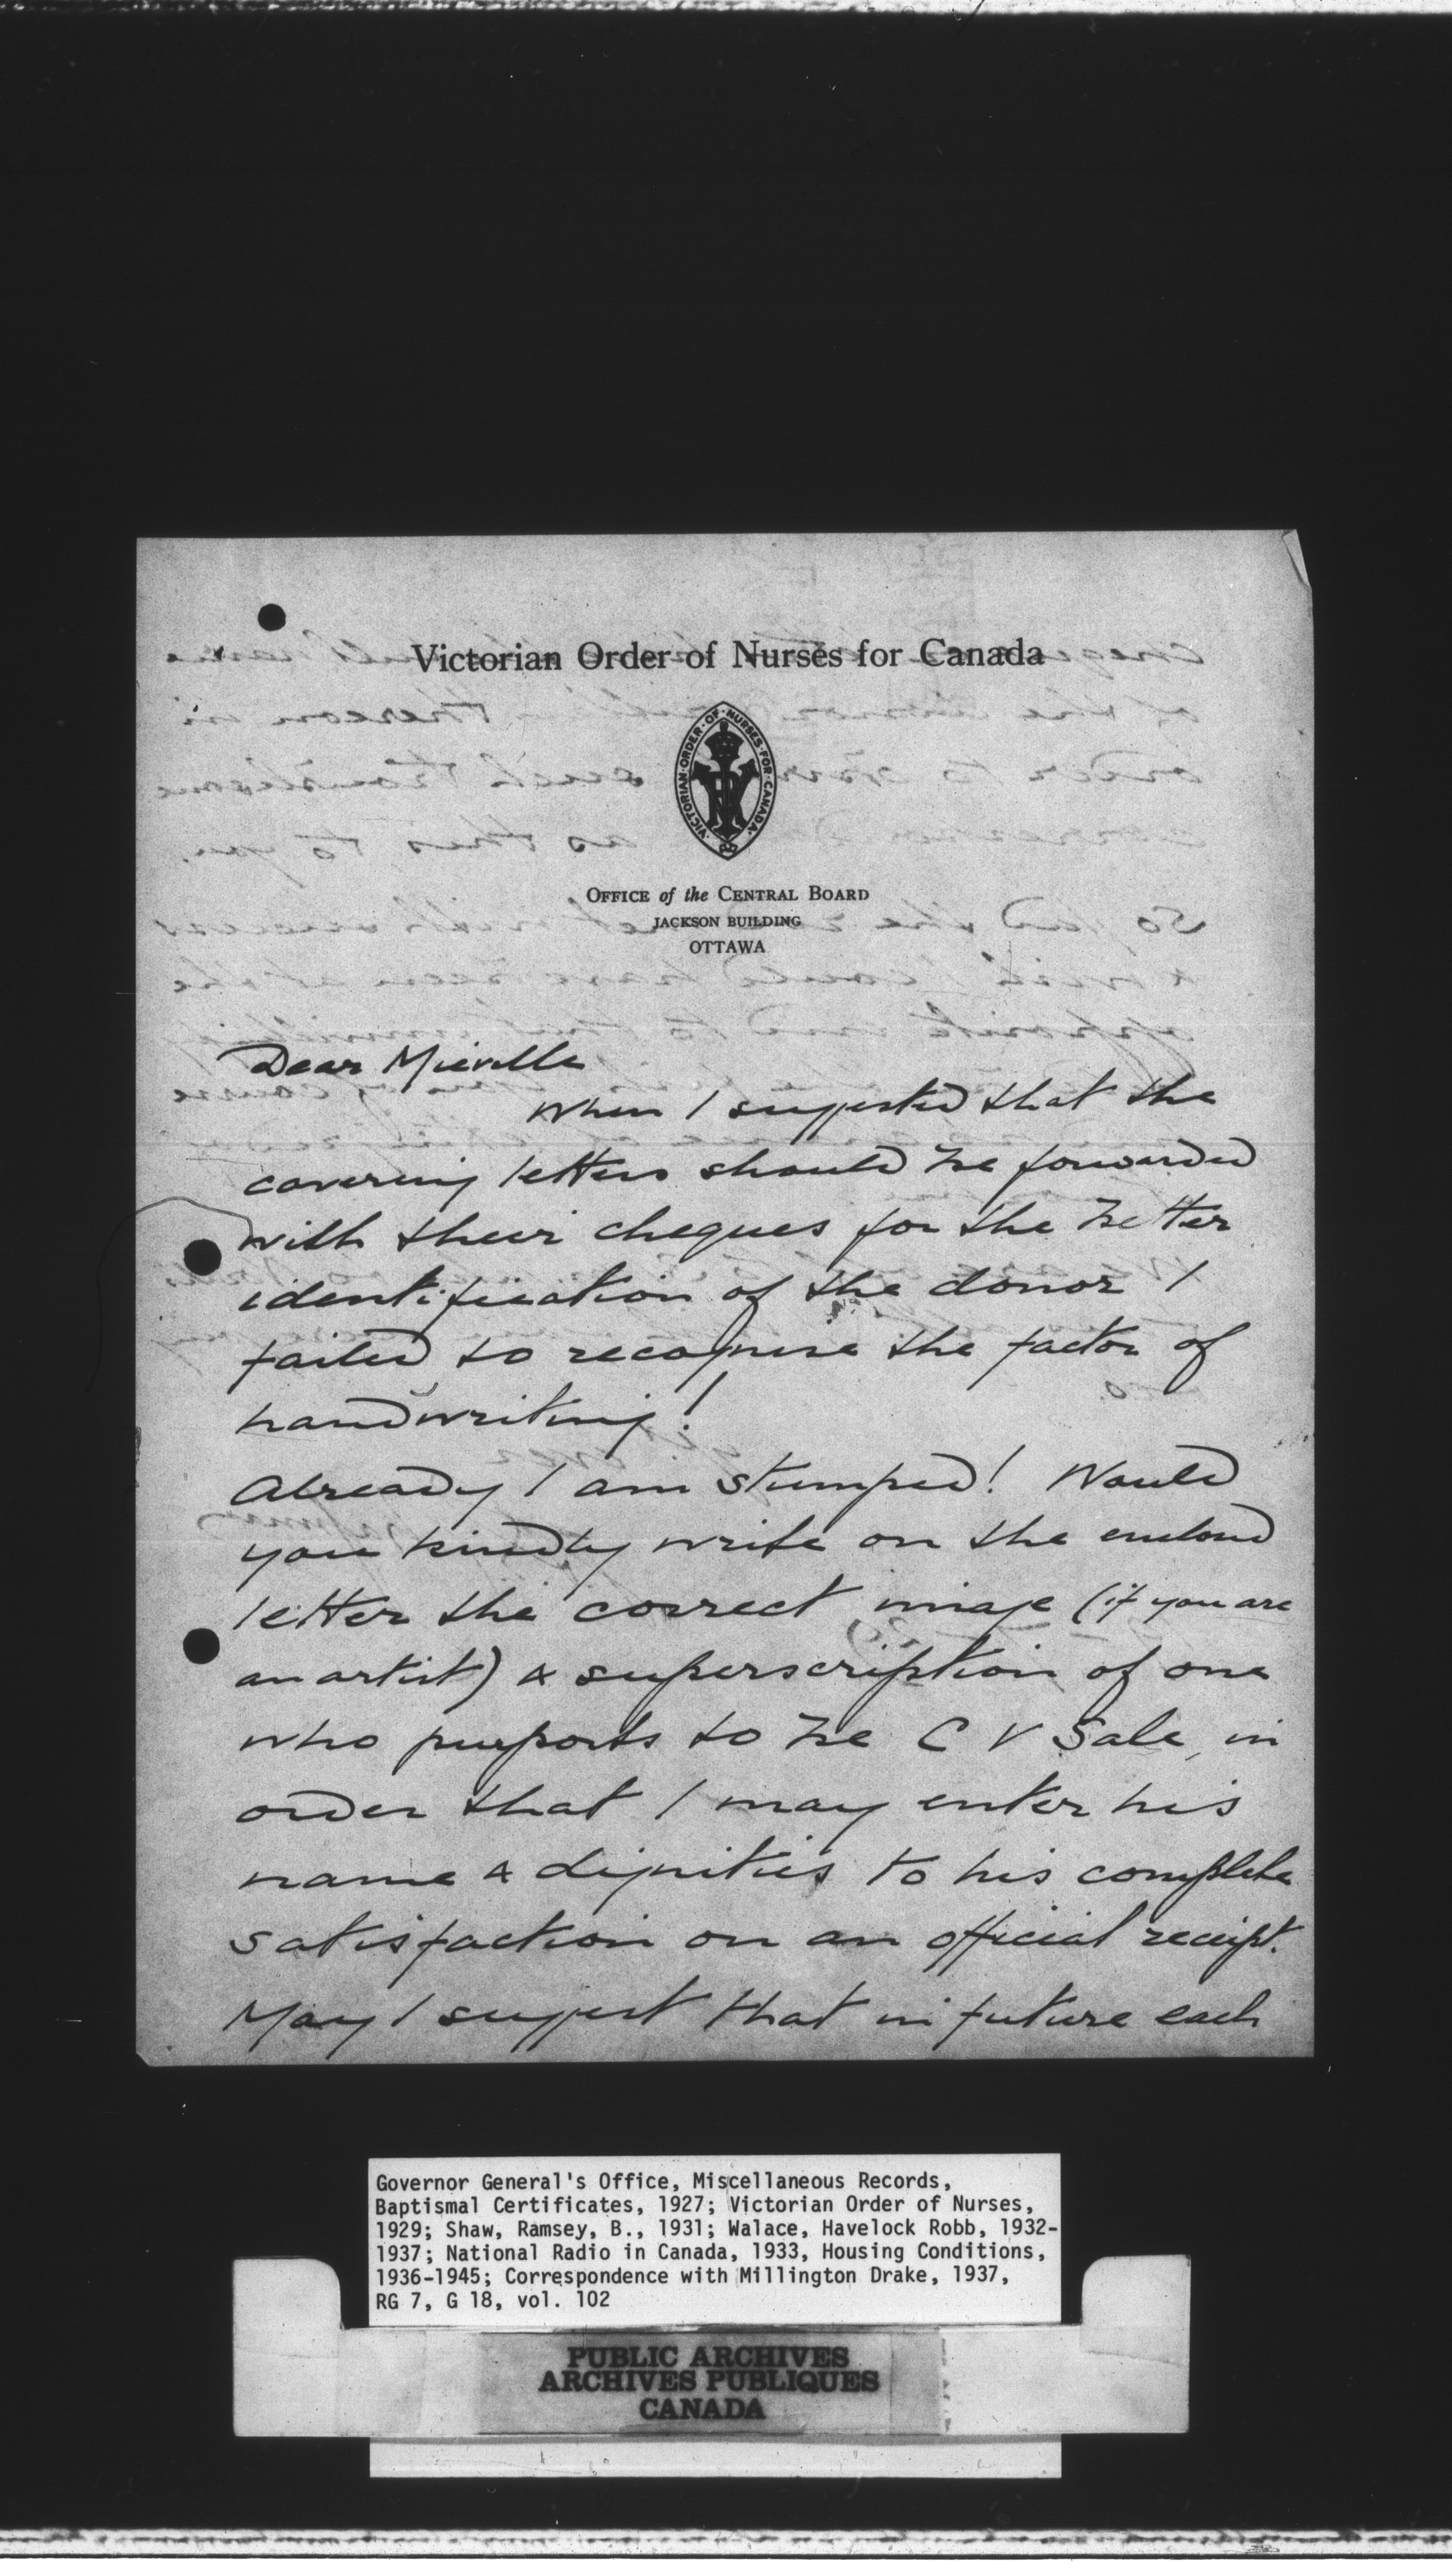 Victorian Order of Nurses for Canada
VICTORIAN·ORDER·OF·NURSES·FOR·CANADA
OFFICE of the CENTRAL BOARD
JACKSON BUILDING
OTTAWA
Dear Mieville
When I suggested that the
covering letters should be forwarded
with their cheques for the better
identification of the donor I
failed to recognise the factor of
handwriting!
Already I am stumped! Would
you kindly write on the enclosed
letter the correct image (if you are
an artist) & superscription of one
who purports to be C V Sale, in
order that I may enter his
name & dignities to his complete
satisfaction on an official receipt.
May I suggest that in future each
Governor General's Office, Miscellaneous Records,
Baptismal Certificates, 1927; Victorian Order of Nurses,
1929; Shaw, Ramsey, B., 1931; Walace, Havelock Robb, 1932-
1937; National Radio in Canada, 1933, Housing Conditions,
1936-1945; Correspondence with Millington Drake, 1937,
RG 7, G 18, vol. 102
PUBLIC ARCHIVES
ARCHIVES PUBLIQUES
CANADA